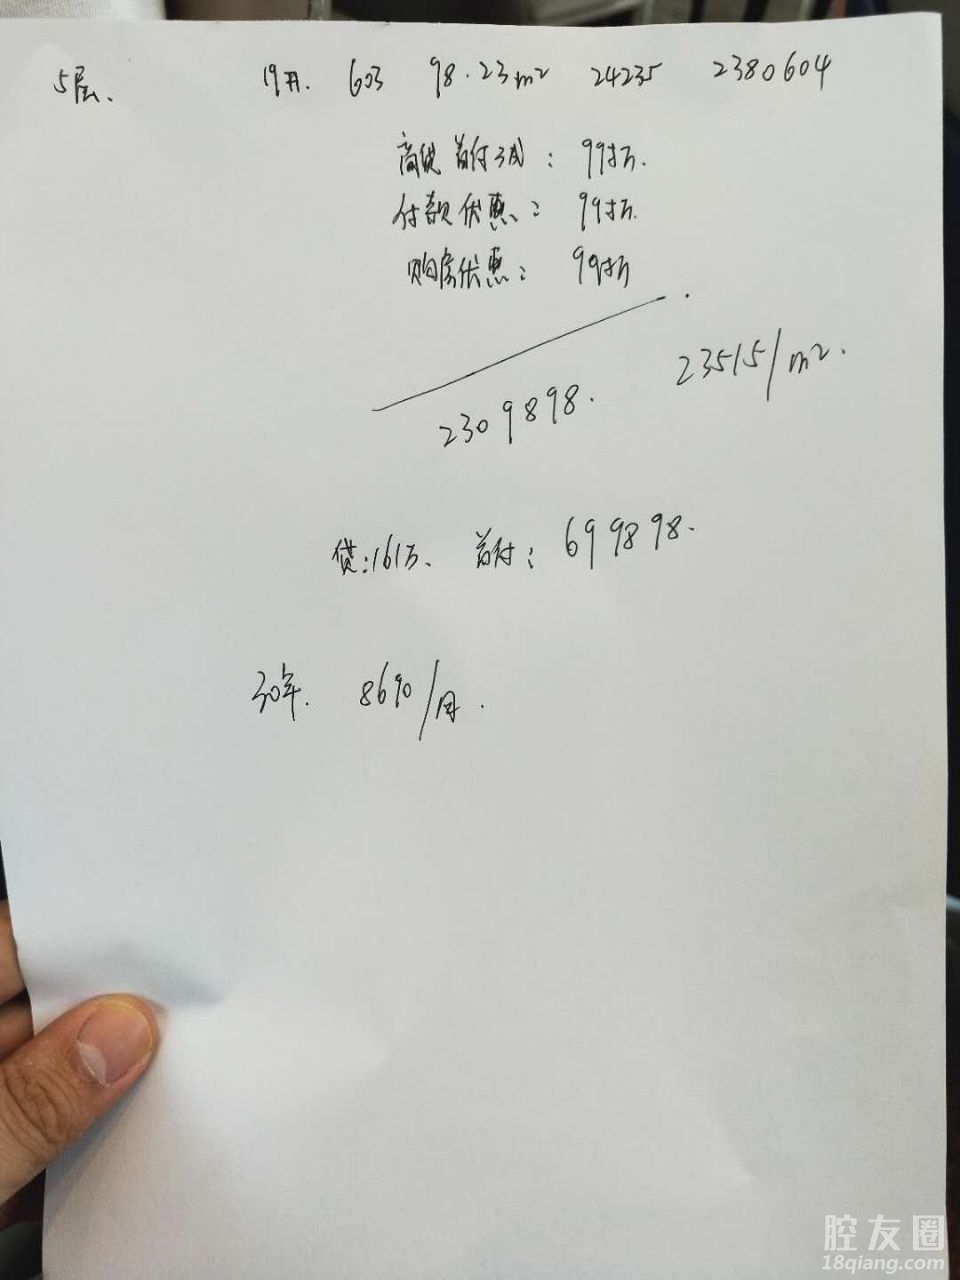 5层、 19开. 603 98.23m² 24235 2380604
商贷首付3成: 99折.
付款优惠: 99折.
购房优惠: 99折
2309898. 23515/m².
贷:161万、 首付: 699898.
30年. 8690/月.
腔友圈
18qiang.com